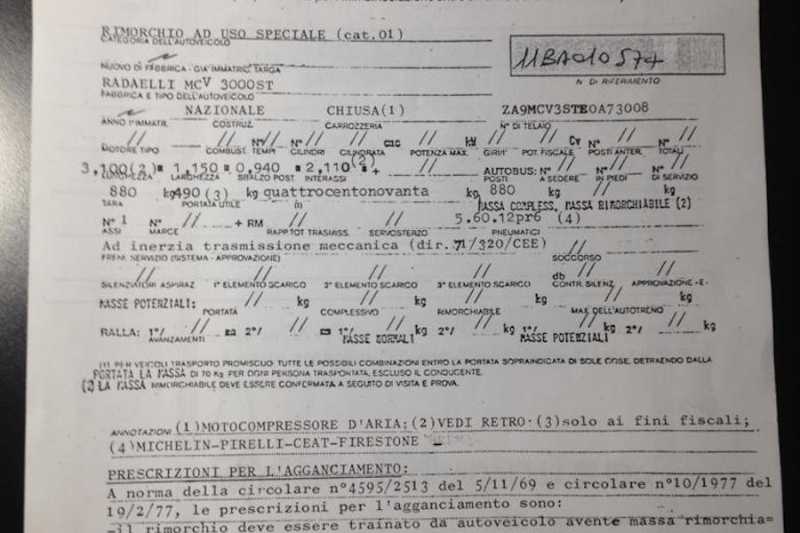 RIMORCHIO AD USO SPECIALE (cat.01)
CATEGORIA DELL'AUTOVEICOLO
11BA010574
NUOVO DI FABBRICA - GIA IMMATRIC. TARGA
N. DI RIFERIMENTO
RADAELLI MCV 3000ST
FABBRICA E TIPO DELL'AUTOVEICOLO
NAZIONALE CHIUSA(1) ZA9MCV3STE0A73008
ANNO 1ª IMMATR. COSTRUZ. CARROZZERIA N° DI TELAIO
// // N° // N° // // cmc // kW // // Cv N° // N° // N° //
MOTORE TIPO COMBUST. TEMPI CILINDRI CILINDRATA POTENZA MAX. GIRI/1' POT. FISCALE POSTI ANTER. TOTALI
3,100(2) 1,150 0,940 2,110(2) + // AUTOBUS: N° // N° // N° //
LUNGHEZZA LARGHEZZA SBALZO POST. INTERASSI POSTI A SEDERE IN PIEDI DI SERVIZIO
880 kg 490(3) kg quattrocentonovanta kg 880 kg // kg
TARA PORTATA UTILE in MASSA COMPLESS. MASSA RIMORCHIABILE (2)
N° 1 N° // // + RM // // 5.60.12pr6 (4)
ASSI MARCE RAPP.TOT TRASMISS. SERVOSTERZO PNEUMATICI
Ad inerzia trasmissione meccanica (dir.71/320/CEE) //
FRENI SERVIZIO (SISTEMA - APPROVAZIONE) SOCCORSO
// // // // db // //
SILENZIATORI ASPIRAZ 1° ELEMENTO SCARICO 2° ELEMENTO SCARICO 3° ELEMENTO SCARICO CONTR. SILENZ. APPROVAZIONE -E-
MASSE POTENZIALI: // kg // kg // kg // kg
PORTATA COMPLESSIVO RIMORCHIABILE MAX DELL'AUTOTRENO
RALLA: 1°/ // 2°/ // 1°/ // kg 2°/ // kg 1°/ // kg 2°/ // kg
AVANZAMENTI MASSE NORMALI MASSE POTENZIALI
(1) PER VEICOLI TRASPORTO PROMISCUO: TUTTE LE POSSIBILI COMBINAZIONI ENTRO LA PORTATA SOPRAINDICATA DI SOLE COSE, DETRAENDO DALLA
PORTATA LA MASSA DI 70 Kg PER OGNI PERSONA TRASPORTATA, ESCLUSO IL CONDUCENTE.
(2) LA MASSA RIMORCHIABILE DEVE ESSERE CONFERMATA A SEGUITO DI VISITA E PROVA.
ANNOTAZIONI (1)MOTOCOMPRESSORE D'ARIA;(2)VEDI RETRO-(3)solo ai fini fiscali;
(4)MICHELIN-PIRELLI-CEAT-FIRESTONE
PRESCRIZIONI PER L'AGGANCIAMENTO:
A norma della circolare n°4595/2513 del 5/11/69 e circolare n°10/1977 del
19/2/77, le prescrizioni per l'agganciamento sono:
-il rimorchio deve essere trainato da autoveicolo avente massa rimorchia=